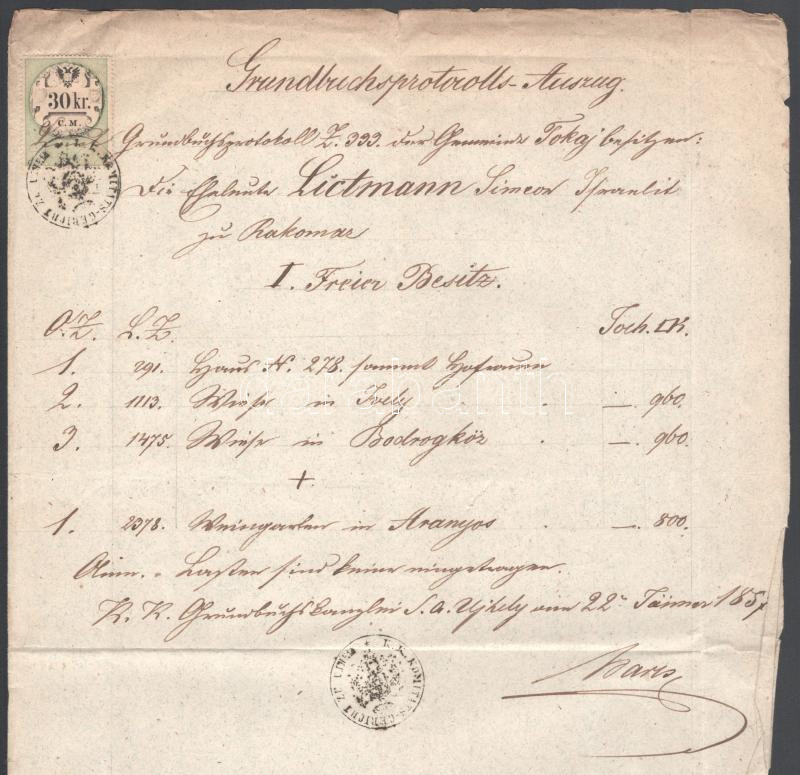 Grundbuchsprotocolls-Auszug.
30 kr.
C. M.
Grundbuchsprotokoll Z. 393. der Gemeinde Tokaj besitzen:
Die Eheleute Lictmann Simeon Israelit
zu Rakomaz
I. Freier Besitz.
O. Z. L. Z. Joch. □K.
1. 291. Haus N. 278. sammt Hofraum
2. 1113. Wiese in . — 960.
3. 1475. Wiese in Bodrogköz . — 960.
+
1. 2378. Weingarten in Aranyos . — 800.
Anm. Lasten sind keine eingetragen.
K. K. Grundbuchskanzlei S. a. Ujhely am 22n Jänner 1857
K. K. KOMITATS-GERICHT ZU
K. K. KOMITATS-GERICHT ZU
darabanth